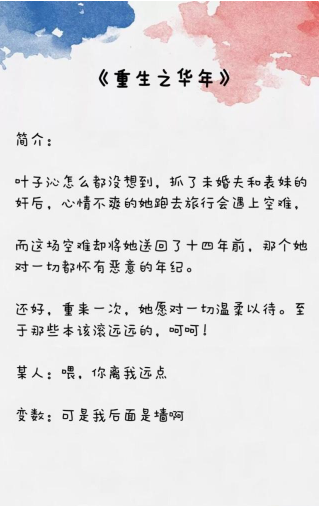 《重生之华年》
简介：
叶子沁怎么都没想到，抓了未婚夫和表妹的
奸后，心情不爽的她跑去旅行会遇上空难，
而这场空难却将她送回了十四年前，那个她
对一切都怀有恶意的年纪。
还好，重来一次，她愿对一切温柔以待。至
于那些本该滚远远的，呵呵！
某人：喂，你离我远点
变数：可是我后面是墙啊